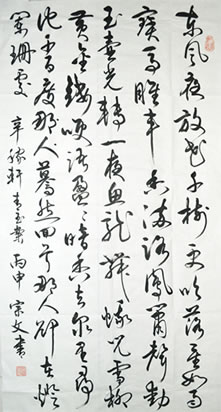 东风夜放花千树更吹落星如雨
宝马雕车香满路凤箫声动
玉壶光转一夜鱼龙舞蛾儿雪柳
黄金缕笑语盈盈暗香去众里寻
他千百度那人蓦然回首那人却在灯
火阑珊处
辛稼轩青玉案丙申宗文书